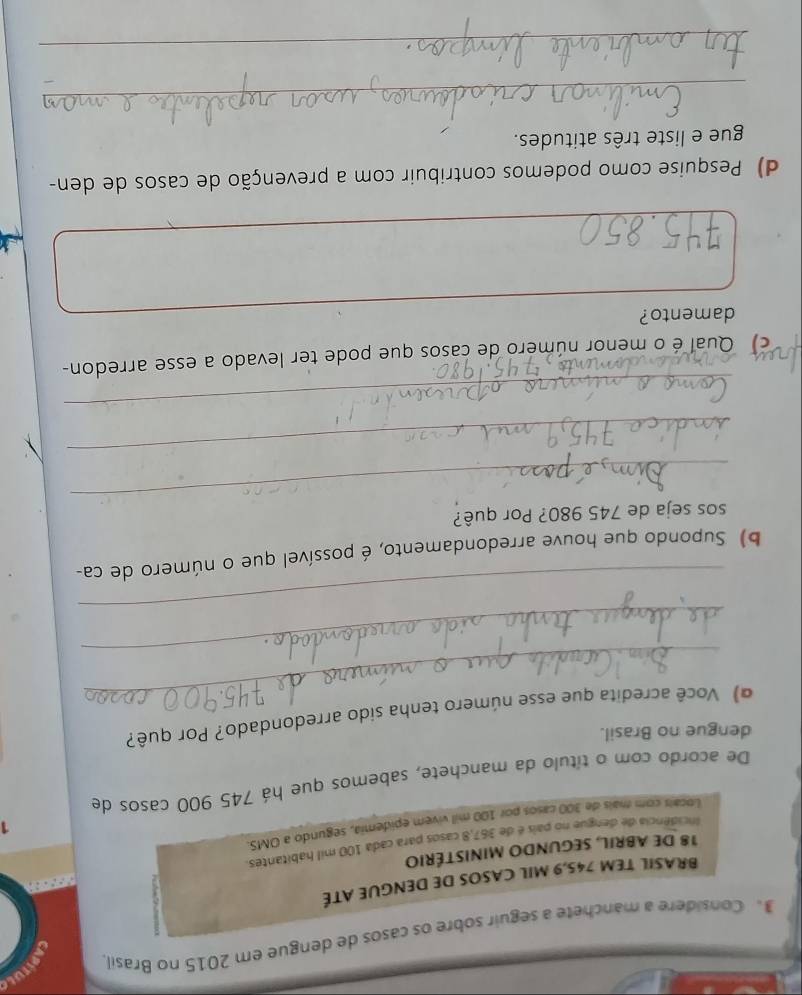 CAPÍTULO
3. Considere a manchete a seguir sobre os casos de dengue em 2015 no Brasil.
BRASIL TEM 745,9 MIL CASOS DE DENGUE ATÉ
18 DE ABRIL, SEGUNDO MINISTÉRIO
Incidência de dengue no país é de 367,8 casos para cada 100 mil habitantes.
Locais com mais de 300 casos por 100 mil vivem epidemia, segundo a OMS.
1
De acordo com o título da manchete, sabemos que há 745 900 casos de
dengue no Brasil.
a) Você acredita que esse número tenha sido arredondado? Por quê?
Sim. Acredito que o número de 745.900 casos
de dengue tenha sido arredondado.
b) Supondo que houve arredondamento, é possível que o número de ca-
sos seja de 745 980? Por quê?
Sim, é
indica 745,9 mil
Como o número
arredondamento, 745.980.
c) Qual é o menor número de casos que pode ter levado a esse arredon-
damento?
745.850
d) Pesquise como podemos contribuir com a prevenção de casos de den-
gue e liste três atitudes.
Emilinar criadouros, usar repelentes e man
ter ambiente limpos.